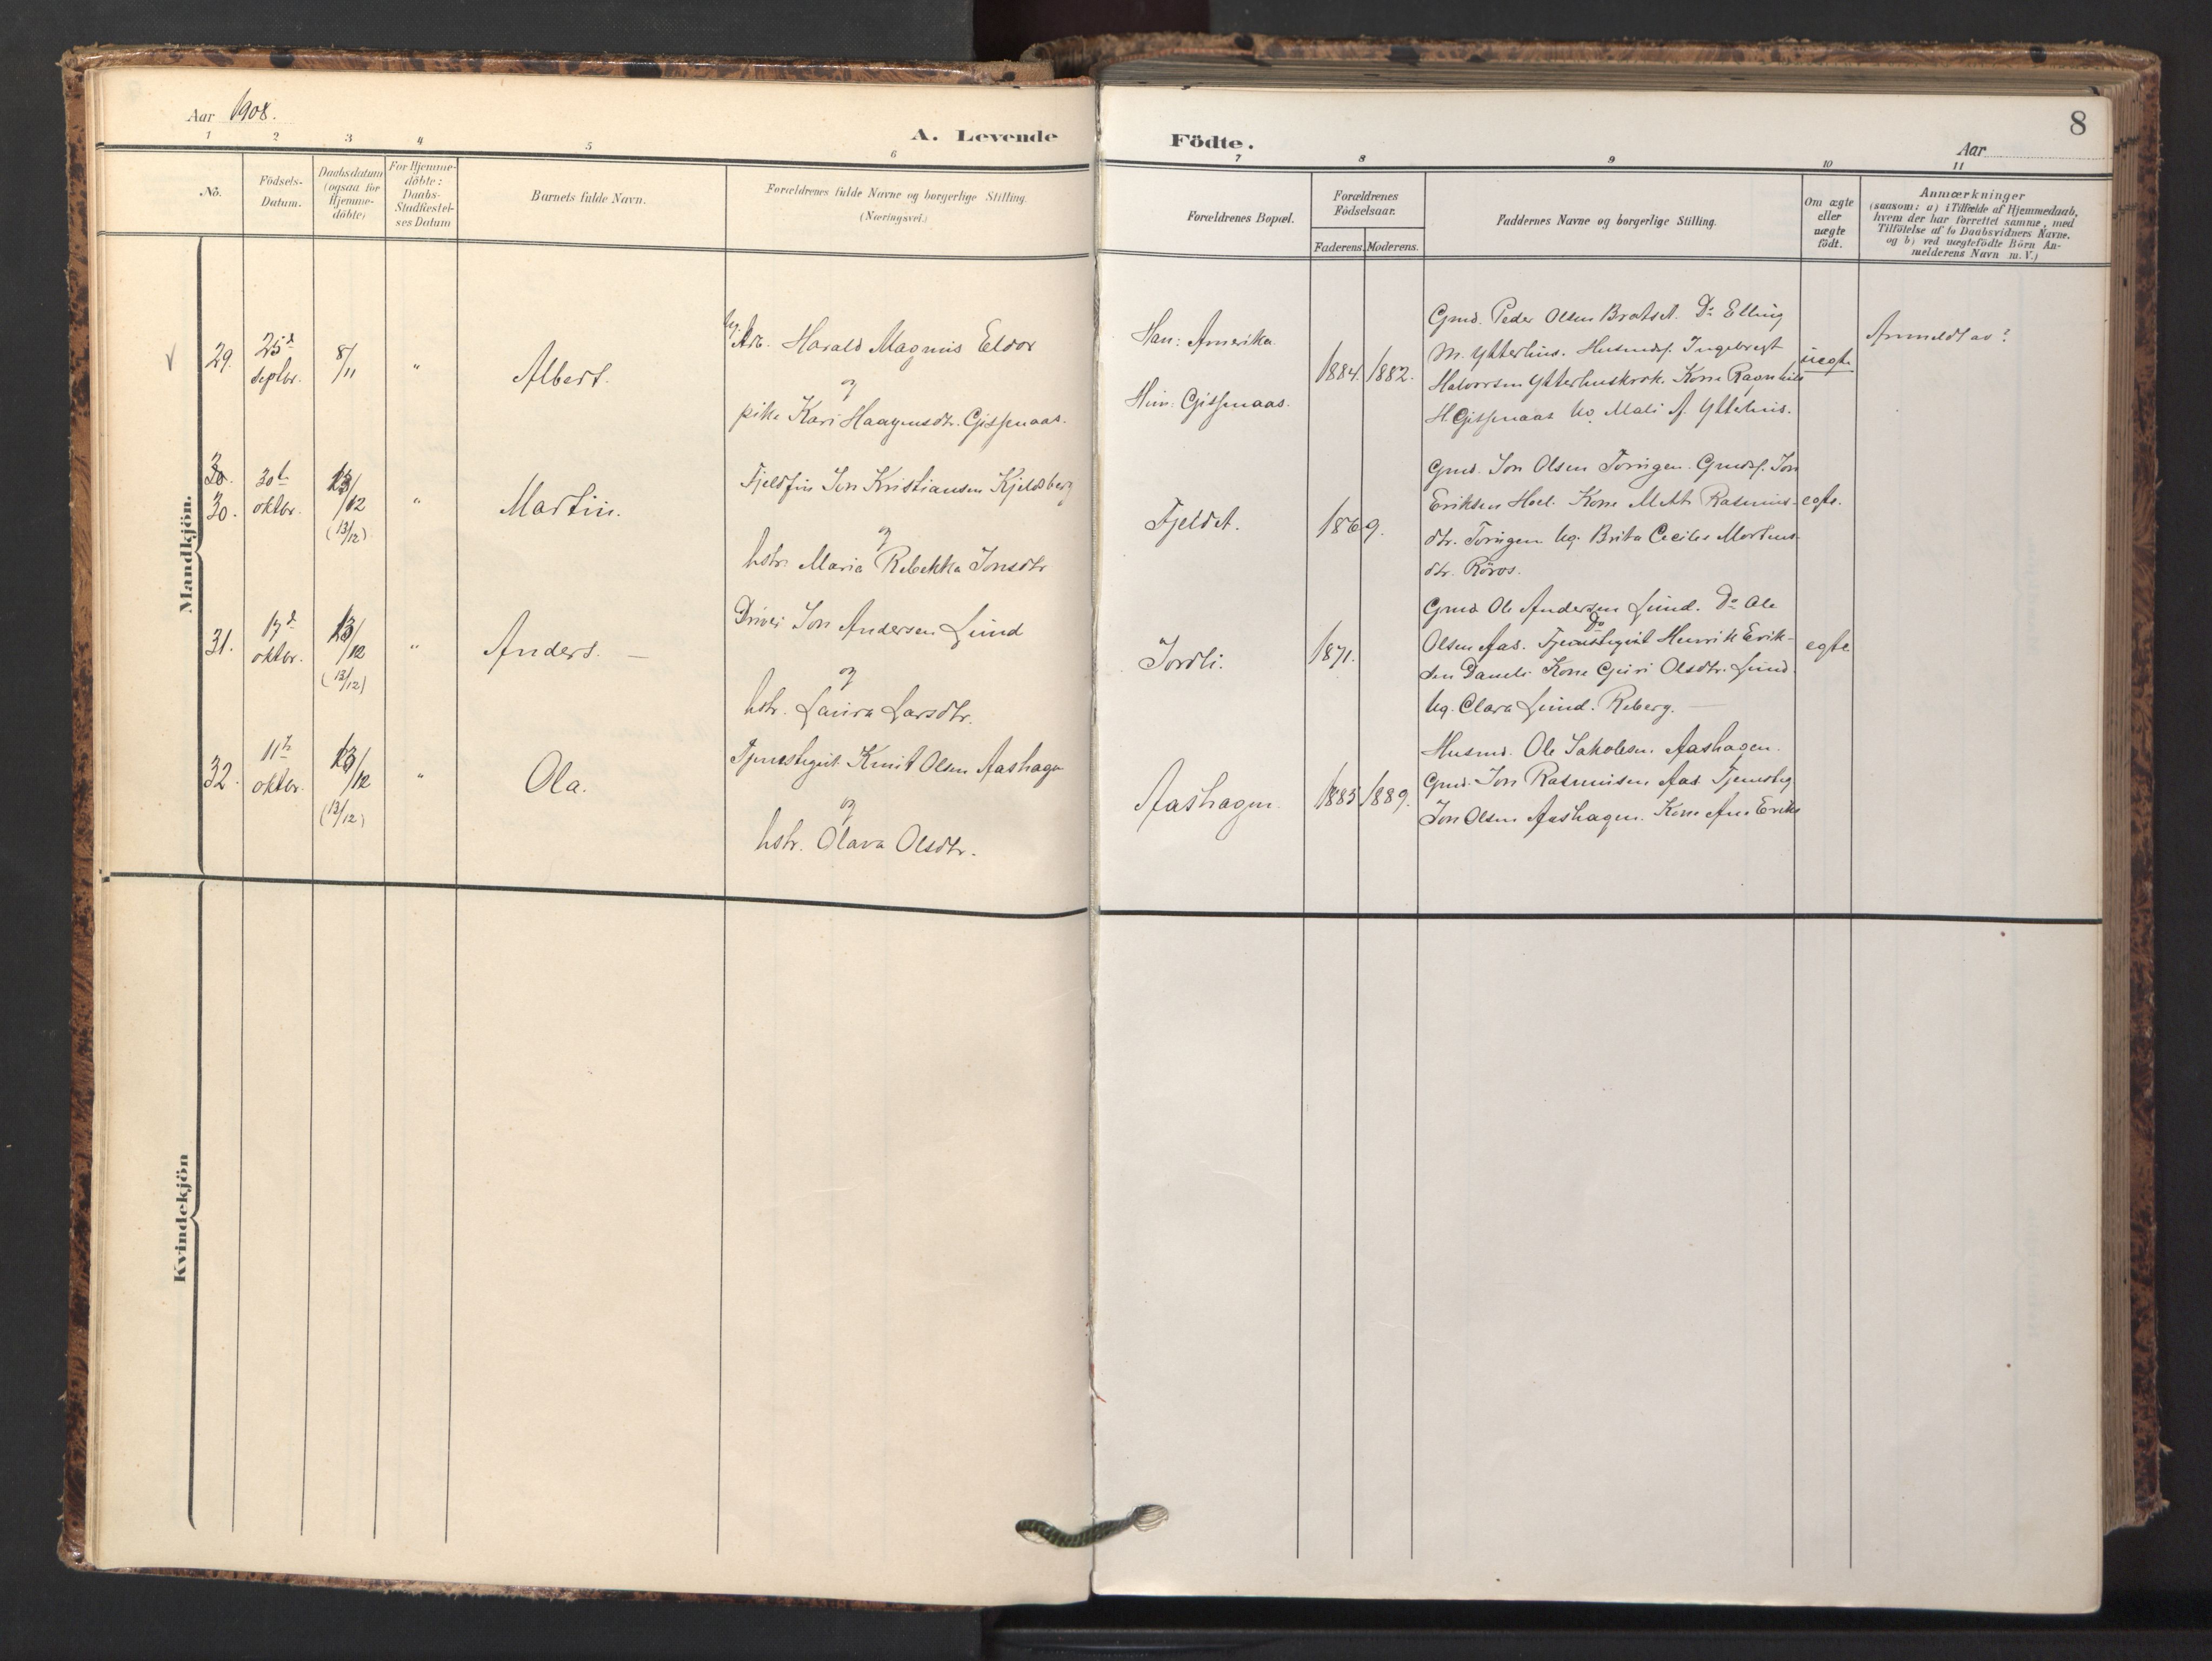 Aar 1908.
A. Levende Födte.
8
Aar
1 2 3 4 5 6 7 8 9 10 11
No.
Födsels-
Datum.
Daabsdatum
(ogsaa for
Hjemme-
döbte)
For Hjemme-
döbte:
Daabs-
Stadfæstel-
ses Datum
Barnets fulde Navn.
Forældrenes fulde Navne og borgerlige Stilling.
(Næringsvei.)
Forældrenes Bopæl.
Forældrenes
Födselsaar.
Faderens. Moderens.
Faddernes Navne og borgerlige Stilling.
Om ægte
eller
uægte
födt.
Anmærkninger
(saasom: a) i Tilfælde af Hjemmedaab,
hvem der har forrettet samme, med
Tilföielse af to Daabsvidners Navne.
og b) ved uægtefödte Börn An-
melderens Navn m. V.)
Mandkjön.
29.
25d
septbr.
8/11
"
Albert.
Ug. Arb. Harald Magnus Eldor
og
pike Kari Haagensdtr. Gissenaas.
Han: Amerika
Hun: Gissenaas.
1884. 1882.
Gmd. Peder Olsen Bratset. Do Elling
M. Ytterhus. Husmdsf. Ingebregt
Halvorsen Ytterhuskrok. Kone Ragnhild
H Gissenaas Ug. Mali A. Ytterhus.
uegte
Anmeldt av?
30.
30.
30te
oktbr.
13/12
(13/12)
"
Martin.
Fjeldfin Jon Kristiansen Kjeldsberg
og
hstr. Maria Rebekka Jonsdtr
Fjeldet.
1869.
Gmd. Jon Olsen Toringen. Gmdsf. Jon
Eriksen Hoel. Kone Mette Rasmus-
dtr. Toringen Ug. Brita Cecilie Mortens-
dtr. Röros.
egte.
31.
17d
oktbr.
13/12
(13/12)
"
Anders. —
Driver Jon Andersen Lund
og
hstr. Laura Larsdtr.
Jordli.
1871.
Gmd Ole Andersen Lund. Do Ole
Olsen Aas. Do Tjenestegut Henrik Erik-
sen Daneli Kone Guri Olsdtr. Lund
Ug. Clara Lund. Reberg. —
egte
32.
11te
oktbr.
13/12
(13/12)
"
Ola.
Tjenestegut Knut Olsen Aashagen
og
hstr. Olava Olsdtr.
Aashagen.
1885 1889.
Husmd. Ole Jakobsen. Aashagen.
Gmd. Jon Rasmusen Aas. Tjenesteg
Jon Olsen Aashagen. Kone Ane Eriks
Kvindekjön